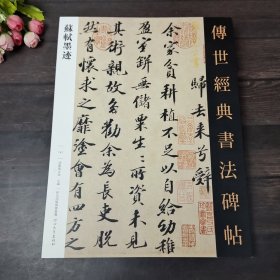 傳世經典書法碑帖
蘇軾墨迹
歸去来兮辭
余家貧耕植不足以自給幼稚
盈室缾無儲粟生生所資未見
其術親故多勸余為長吏脱
然有懷求之靡塗會有四方之